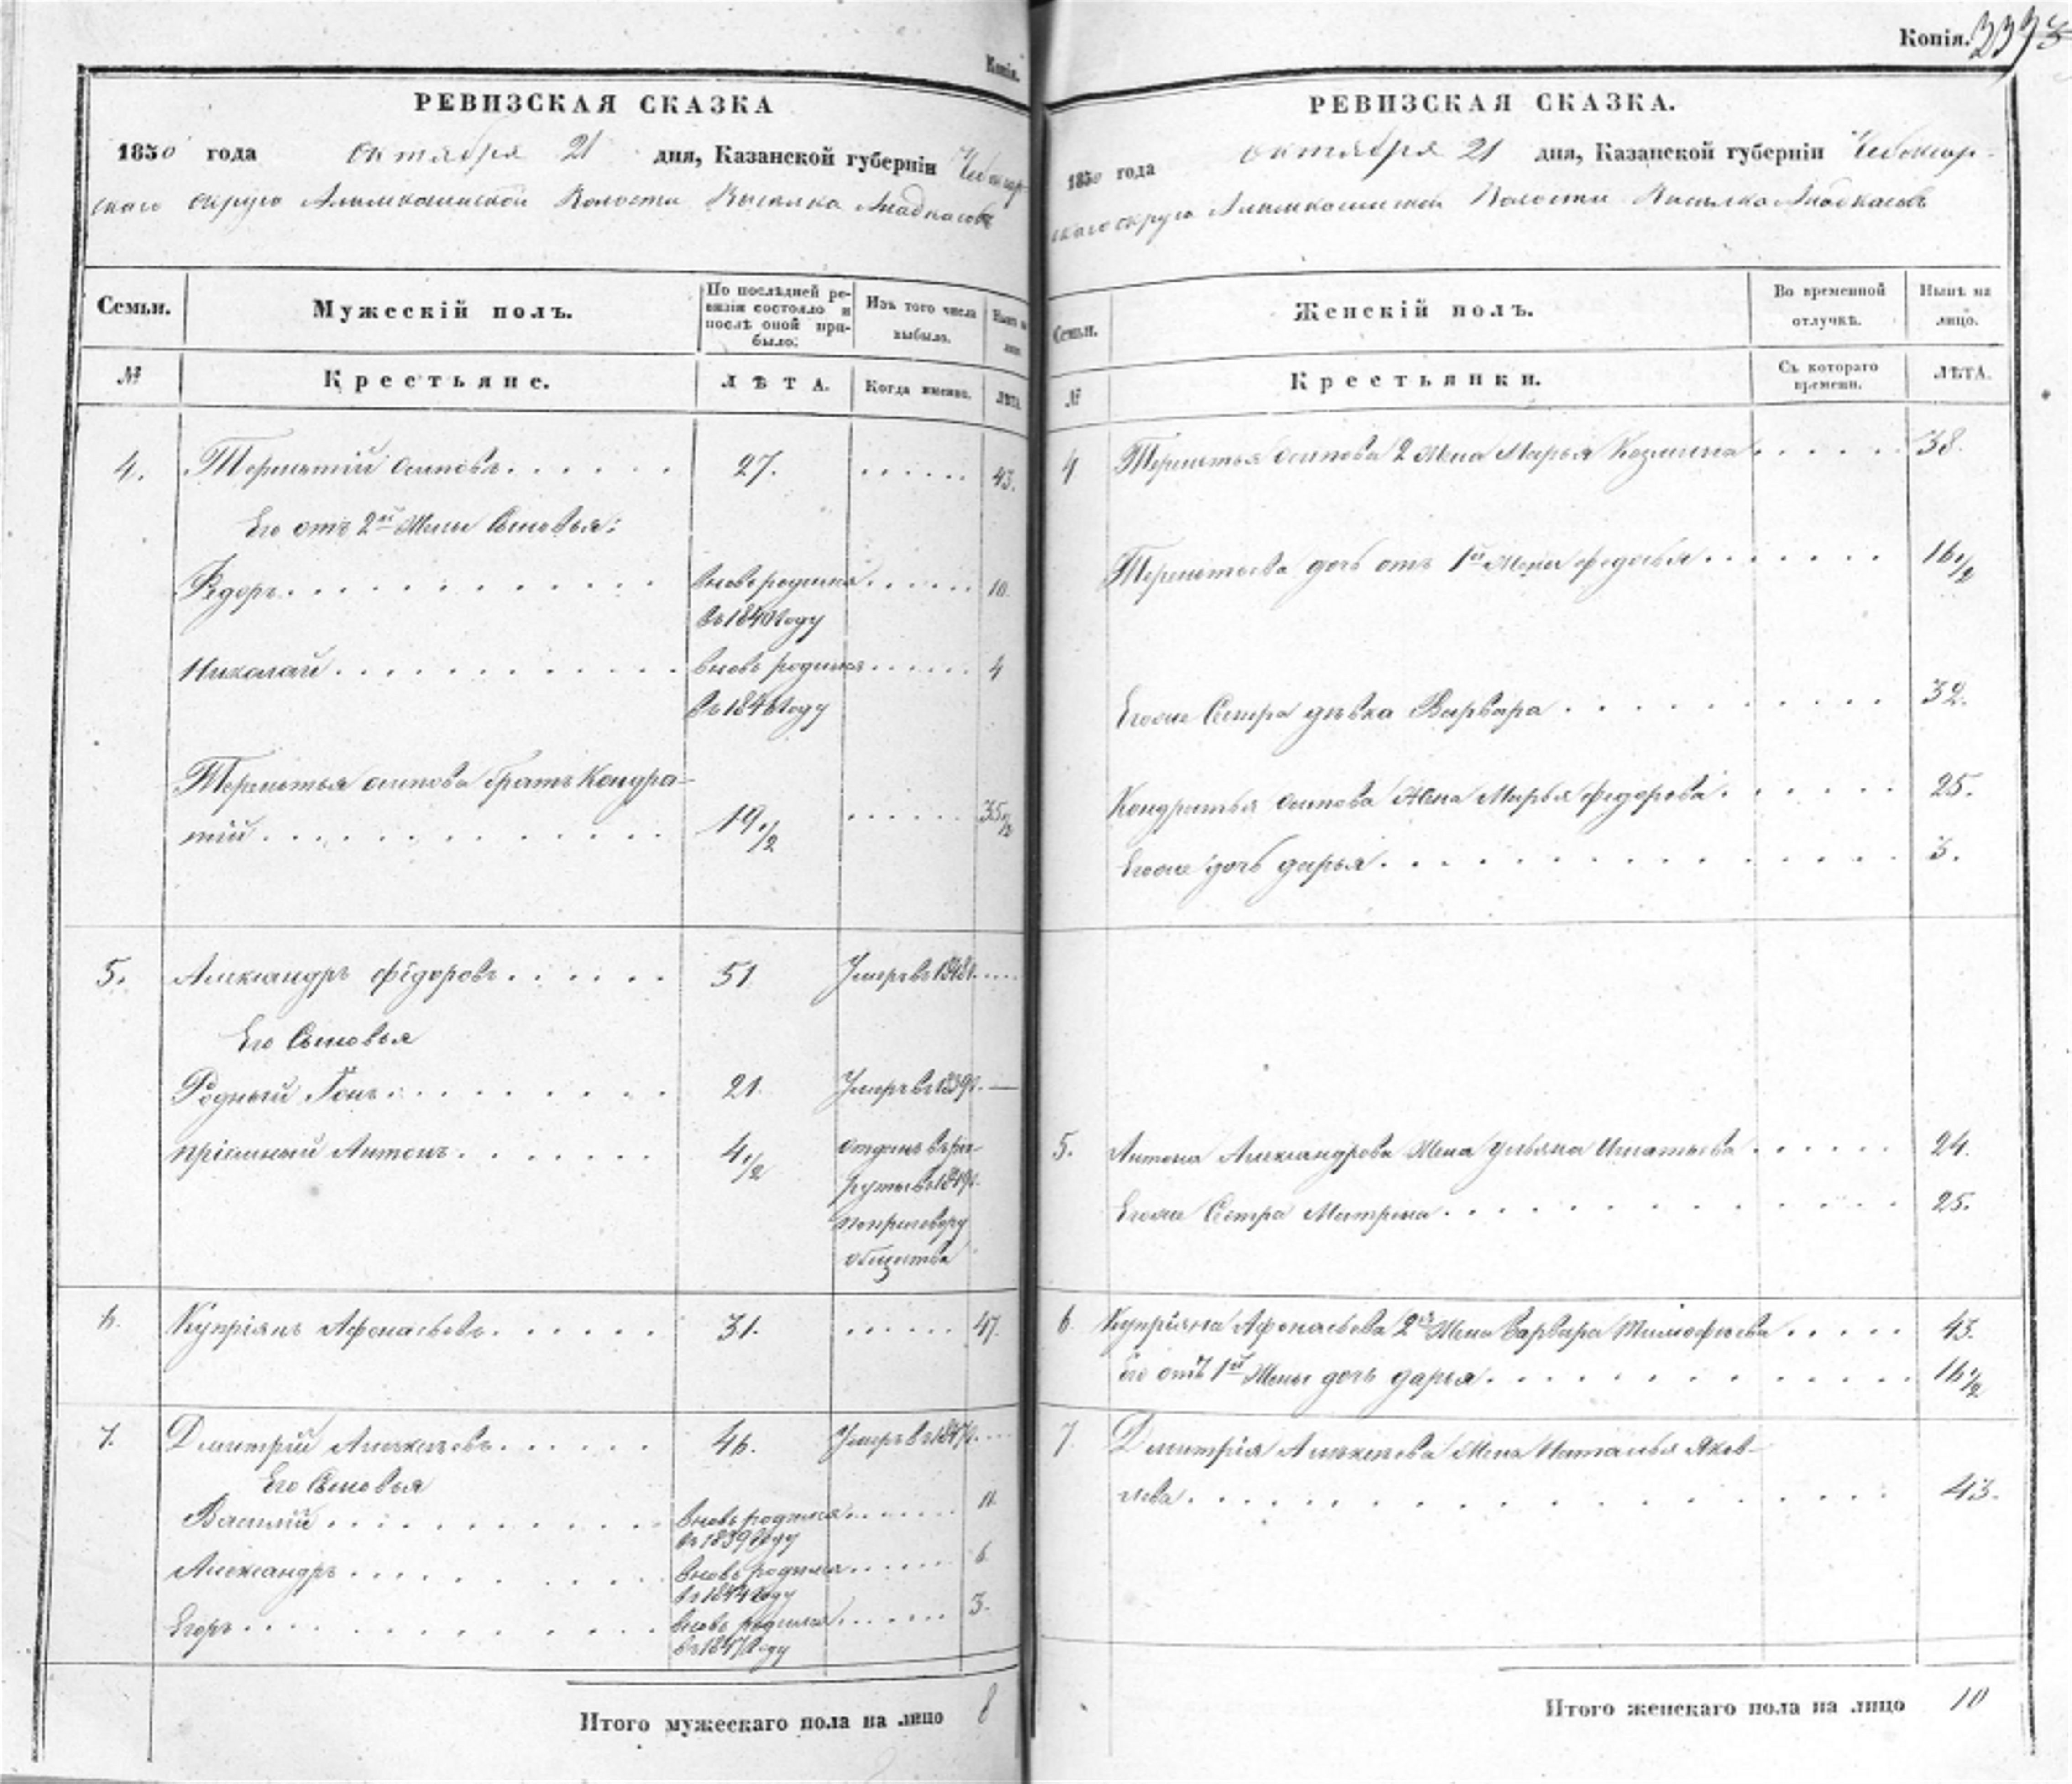 Копія.
РЕВИЗСКАЯ СКАЗКА
1850 года Октября 21 дня, Казанской губерніи Чебоксар-
скаго округа Алымкасинской Волости Выселка
Семьи.
Мужескій полъ.
По послѣдней ре-
визіи состояло и
послѣ оной при-
было:
Изъ того числа
выбыло.
Нынѣ на
лицо.
№
Крестьяне.
ЛѢТА.
Когда именно.
ЛѢТА.
4. Терентій Осиповъ 27. 43.
Его отъ 2й Жены Сыновья:
Ѳедоръ вновь родился 10
въ 1840 году
Николай вновь родился 4
въ 1846 году
Терентья Осипова братъ Кондра-
тій 19 1/2 35 1/2
5. Александръ Ѳедоровъ 51 Умеръ въ 1848 г.
Его Сыновья
Родный 21. Умеръ въ 1839 г. —
пріемный Антонъ 4 1/2 отданъ въ рек-
руты въ 1849 г.
по приговору
общества
6. Купріянъ Афонасьевъ 31. 47.
7. Дмитрій Алексѣевъ 46. Умеръ въ 1847 г.
Его Сыновья
Василій вновь родился 11.
въ 1839 году
Александръ вновь родился 6
въ 1844 году
Егоръ вновь родился 3.
въ 1847 году
Итого мужескаго пола на лицо 8
Копія.
РЕВИЗСКАЯ СКАЗКА.
1850 года Октября 21 дня, Казанской губерніи Чебоксар-
скаго округа Алымкасинской Волости Выселка
Семьи.
Женскій полъ.
Во временной
отлучкѣ.
Нынѣ на
лицо.
№
Крестьянки.
Съ котораго
времени.
ЛѢТА.
4 Терентья Осипова 2 Жена Марья Козмина 38.
Терентьева дочь отъ 1й Жены Федосья 16 1/2
Егоже Сестра дѣвка Варвара 32.
Кондратья Осипова Жена Марья Федорова 25.
Егоже дочь Дарья 3.
5. Антона Александрова Жена Ульяна Игнатьева 24.
Егоже Сестра Матрена 25.
6 Купріяна Афонасьева 2я Жена Варвара Тимофеева 43.
Его отъ 1й Жены дочь Дарья 16 1/2
7 Дмитрія Алексѣева Жена Наталья Яков-
лева 43.
Итого женскаго пола на лицо 10